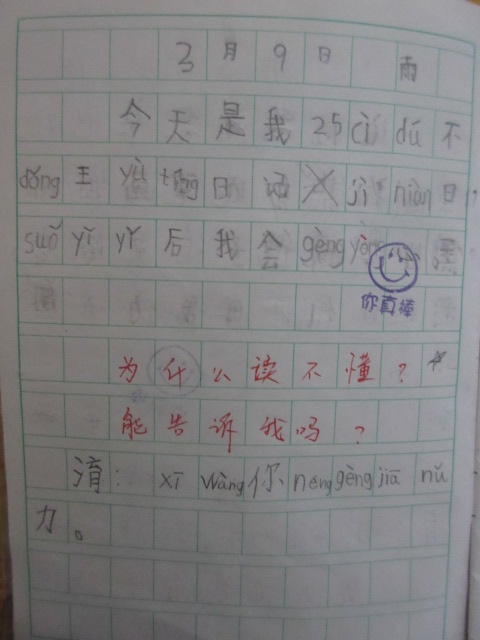 3月9日 雨
今天是我25cì dú 不
dǒng 王 yǔ tóng 日记 jì niàn 日,
suǒ yǐ yǐ 后我会 gèng
你真棒
为什么读不懂?
能告诉我吗?
淯: xī wàng 你 néng gèng jiā nǔ
力。